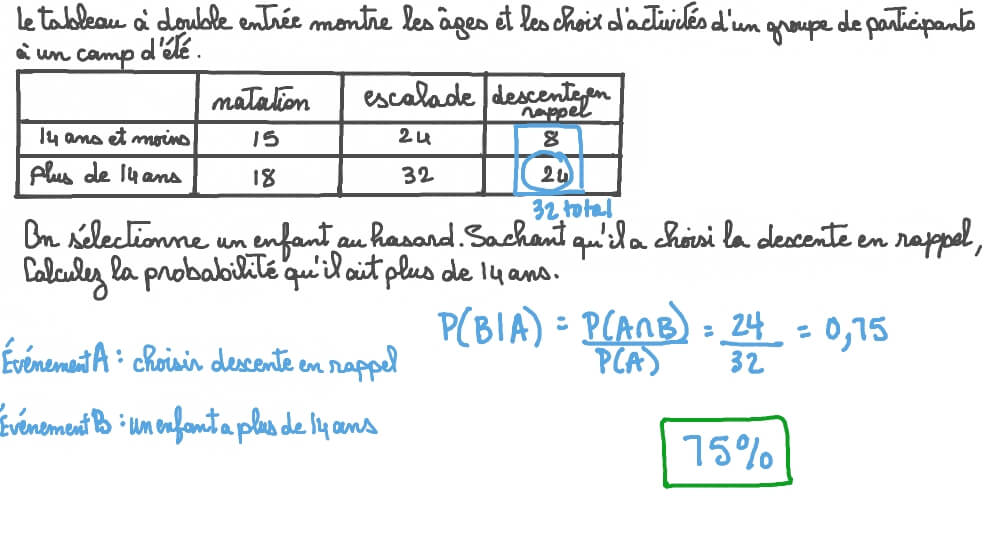 Le tableau à double entrée montre les âges et les choix d'activités d'un groupe de participants
à un camp d'été.
natation escalade descente en
rappel
14 ans et moins 15 24 8
Plus de 14 ans 18 32 24
32 total
On sélectionne un enfant au hasard. Sachant qu'il a choisi la descente en rappel,
Calculez la probabilité qu'il ait plus de 14 ans.
P(B|A) = P(A∩B) / P(A) = 24 / 32 = 0,75
Événement A : choisir descente en rappel
Événement B : un enfant a plus de 14 ans
75%